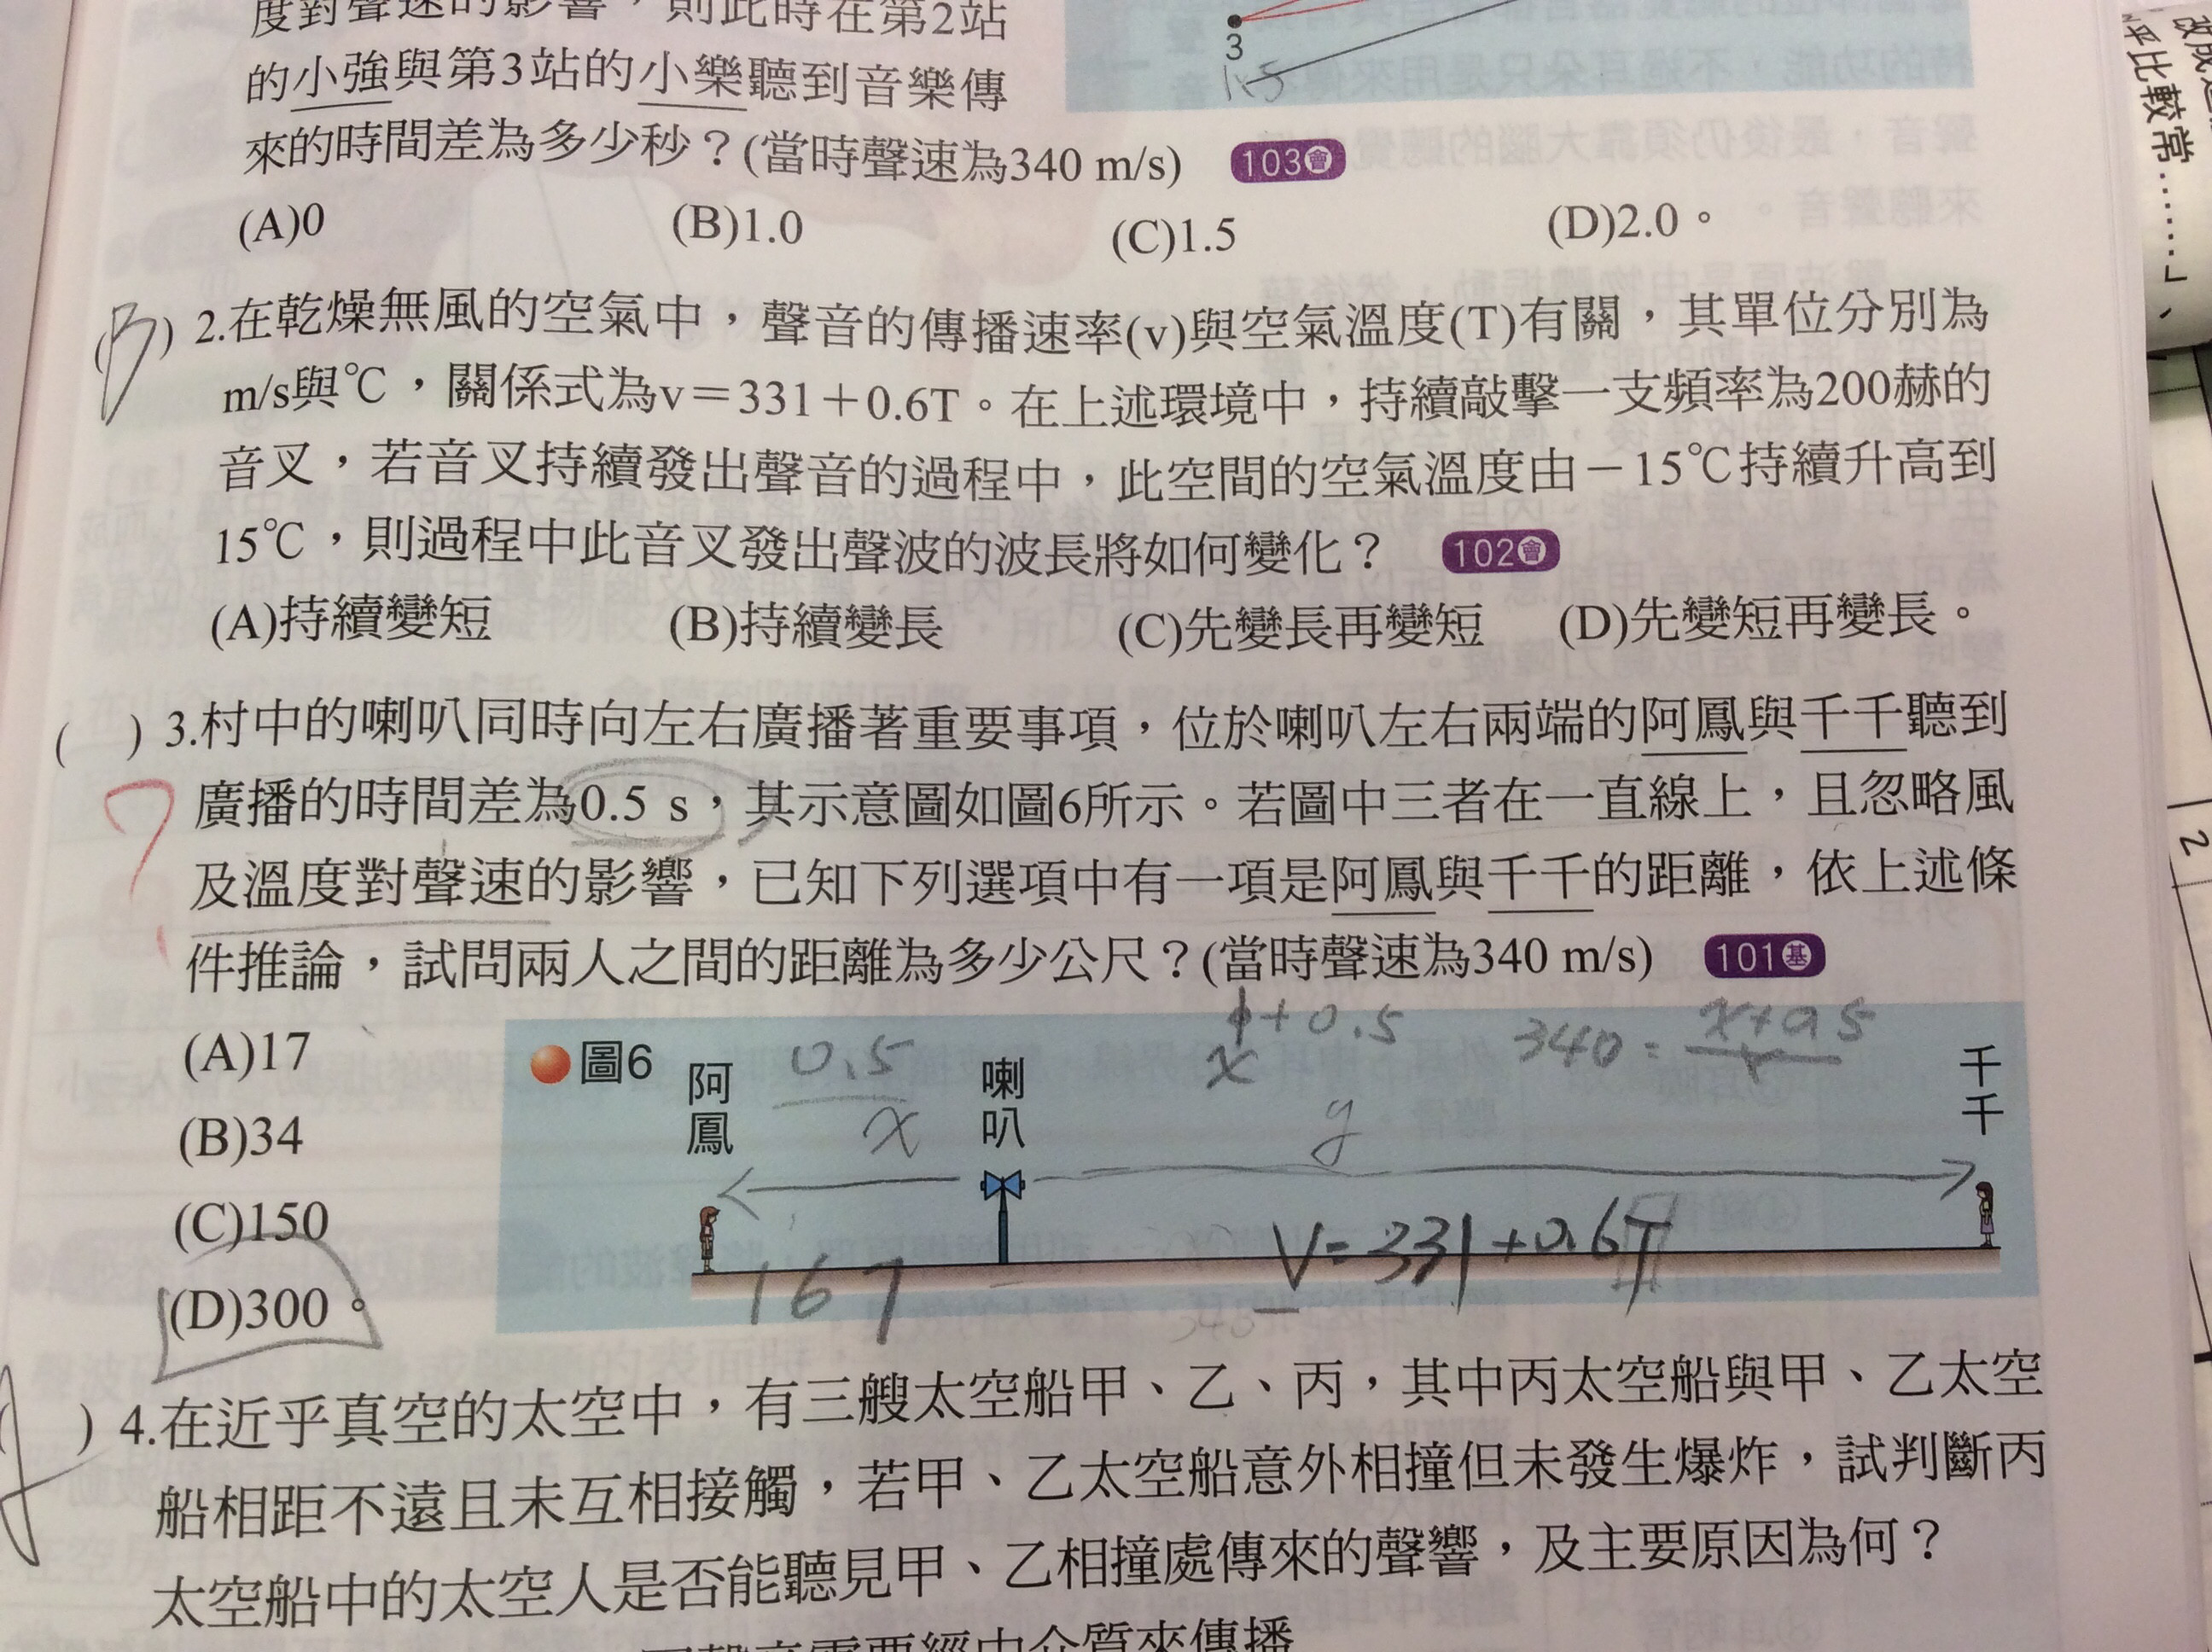 度對聲速的影響，則此時在第2站
的小強與第3站的小樂聽到音樂傳
來的時間差為多少秒？(當時聲速為340 m/s) 103會
3
(A)0 (B)1.0 (C)1.5 (D)2.0。
(B) 2.在乾燥無風的空氣中，聲音的傳播速率(v)與空氣溫度(T)有關，其單位分別為
m/s與℃，關係式為v＝331＋0.6T。在上述環境中，持續敲擊一支頻率為200赫的
音叉，若音叉持續發出聲音的過程中，此空間的空氣溫度由－15℃持續升高到
15℃，則過程中此音叉發出聲波的波長將如何變化？ 102會
(A)持續變短 (B)持續變長 (C)先變長再變短 (D)先變短再變長。
( ) 3.村中的喇叭同時向左右廣播著重要事項，位於喇叭左右兩端的阿鳳與千千聽到
?
廣播的時間差為0.5 s，其示意圖如圖6所示。若圖中三者在一直線上，且忽略風
及溫度對聲速的影響，已知下列選項中有一項是阿鳳與千千的距離，依上述條
件推論，試問兩人之間的距離為多少公尺？(當時聲速為340 m/s) 101基
(A)17
(B)34
(C)150
(D)300。
圖6
阿鳳
0.5
x
喇叭
+0.5
x
340 = x+0.5
y
千千
167
V=331+0.6T
) 4.在近乎真空的太空中，有三艘太空船甲、乙、丙，其中丙太空船與甲、乙太空
船相距不遠且未互相接觸，若甲、乙太空船意外相撞但未發生爆炸，試判斷丙
太空船中的太空人是否能聽見甲、乙相撞處傳來的聲響，及主要原因為何？
聲音需要經由介質來傳播
平比較常……」、
2